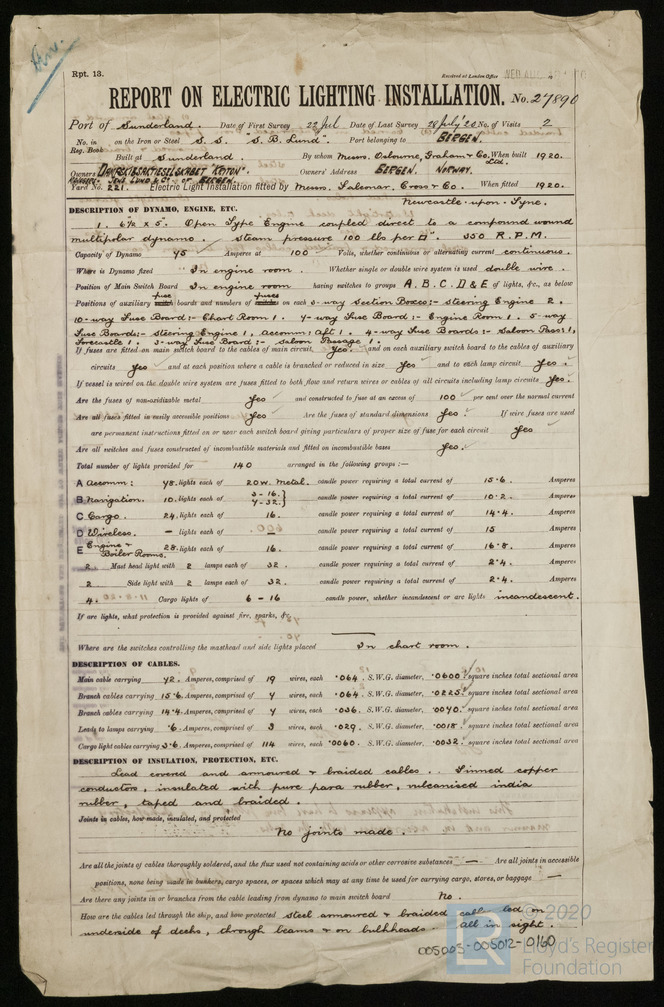 Rpt. 13.
Received at London Office WED. AUG.
REPORT ON ELECTRIC LIGHTING INSTALLATION. No. 27890
Port of Sunderland. Date of First Survey 22 Jul Date of Last Survey 28 July '20 No. of Visits 2
No. in Reg. Book on the Iron or Steel S.S. "S. B. Lund". Port belonging to BERGEN.
Built at Sunderland. By whom Messrs. Osbourne, Graham & Co. Ltd. When built 1920.
Owners Owners' Address BERGEN. NORWAY.
MANAGERS. JENS LUND & Co. OF BERGEN.
Yard No. 221. Electric Light Installation fitted by Messrs. Falconar, Cross & Co. When fitted 1920.
Newcastle-upon-Tyne.
DESCRIPTION OF DYNAMO, ENGINE, ETC.
1. 6½ x 5". Open Type Engine coupled direct to a compound wound
multipolar dynamo. Steam pressure 100 lbs per □". 350 R.P.M.
Capacity of Dynamo 75 Amperes at 100 Volts, whether continuous or alternating current continuous.
Where is Dynamo fixed In engine room. Whether single or double wire system is used double wire.
Position of Main Switch Board In engine room. having switches to groups A. B. C. D & E of lights, &c., as below
Positions of auxiliary fuse switch boards and numbers of fuses switches on each 3-way Section Boxes:- Steering Engine 2.
10-way Fuse Board:- Chart Room 1. 7-way Fuse Board:- Engine Room 1. 5-way
Fuse Boards:- Steering Engine 1, Accomm: Aft 1. 4-way Fuse Boards:- Saloon Pass: 1,
Forecastle 1. 3-way Fuse Board:- Saloon Passage 1.
If fuses are fitted on main switch board to the cables of main circuit, Yes. and on each auxiliary switch board to the cables of auxiliary
circuits Yes and at each position where a cable is branched or reduced in size Yes and to each lamp circuit Yes.
If vessel is wired on the double wire system are fuses fitted to both flow and return wires or cables of all circuits including lamp circuits Yes.
Are the fuses of non-oxidizable metal Yes and constructed to fuse at an excess of 100 per cent over the normal current
Are all fuses fitted in easily accessible positions Yes Are the fuses of standard dimensions Yes. If wire fuses are used
are permanent instructions fitted on or near each switch board giving particulars of proper size of fuse for each circuit Yes
Are all switches and fuses constructed of incombustible materials and fitted on incombustible bases Yes.
Total number of lights provided for 140 arranged in the following groups :—
A Accomm: 78. lights each of 20 w. metal. candle power requiring a total current of 15.6 Amperes
B Navigation. 10. lights each of 3 - 16. 7 - 32. } candle power requiring a total current of 10.2 Amperes
C Cargo. 24. lights each of 16. candle power requiring a total current of 14.4 Amperes
D Wireless. — lights each of — candle power requiring a total current of 15 Amperes
E Engine & Boiler Rooms. 28. lights each of 16. candle power requiring a total current of 16.8 Amperes
2. Mast head light with 2 lamps each of 32. candle power requiring a total current of 2.4 Amperes
2 Side light with 2 lamps each of 32. candle power requiring a total current of 2.4 Amperes
4. Cargo lights of 6 - 16 candle power, whether incandescent or arc lights incandescent.
If arc lights, what protection is provided against fire, sparks, &c.
Where are the switches controlling the masthead and side lights placed In chart room.
DESCRIPTION OF CABLES.
Main cable carrying 72. Amperes, comprised of 19 wires, each .064 S.W.G. diameter, .0600 square inches total sectional area
Branch cables carrying 15.6. Amperes, comprised of 7 wires, each .064 S.W.G. diameter, .0225 square inches total sectional area
Branch cables carrying 14.4. Amperes, comprised of 7 wires, each .036 S.W.G. diameter, .0070 square inches total sectional area
Leads to lamps carrying .6. Amperes, comprised of 3 wires, each .029 S.W.G. diameter, .0018 square inches total sectional area
Cargo light cables carrying 3.6. Amperes, comprised of 114 wires, each .0060. S.W.G. diameter, .0032. square inches total sectional area
DESCRIPTION OF INSULATION, PROTECTION, ETC.
Lead covered and armoured & braided cables. Tinned copper
conductors, insulated with pure para rubber, vulcanised india
rubber, taped and braided.
Joints in cables, how made, insulated, and protected
No joints made.
Are all the joints of cables thoroughly soldered, and the flux used not containing acids or other corrosive substances — Are all joints in accessible
positions, none being made in bunkers, cargo spaces, or spaces which may at any time be used for carrying cargo, stores, or baggage —
Are there any joints in or branches from the cable leading from dynamo to main switch board No.
How are the cables led through the ship, and how protected Steel armoured & braided cables led on
underside of decks, through beams & on bulkheads. All in sight.
005005-005012-0160
© 2020
LR
Lloyd's Register
Foundation